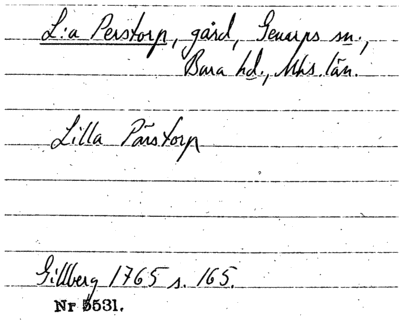 L:a Perstorp, gård, Genarps sn.,
Bara hd., Mhs. län.
Lilla Pärstorp
Gillberg 1765 s. 165.
Nr 5531.